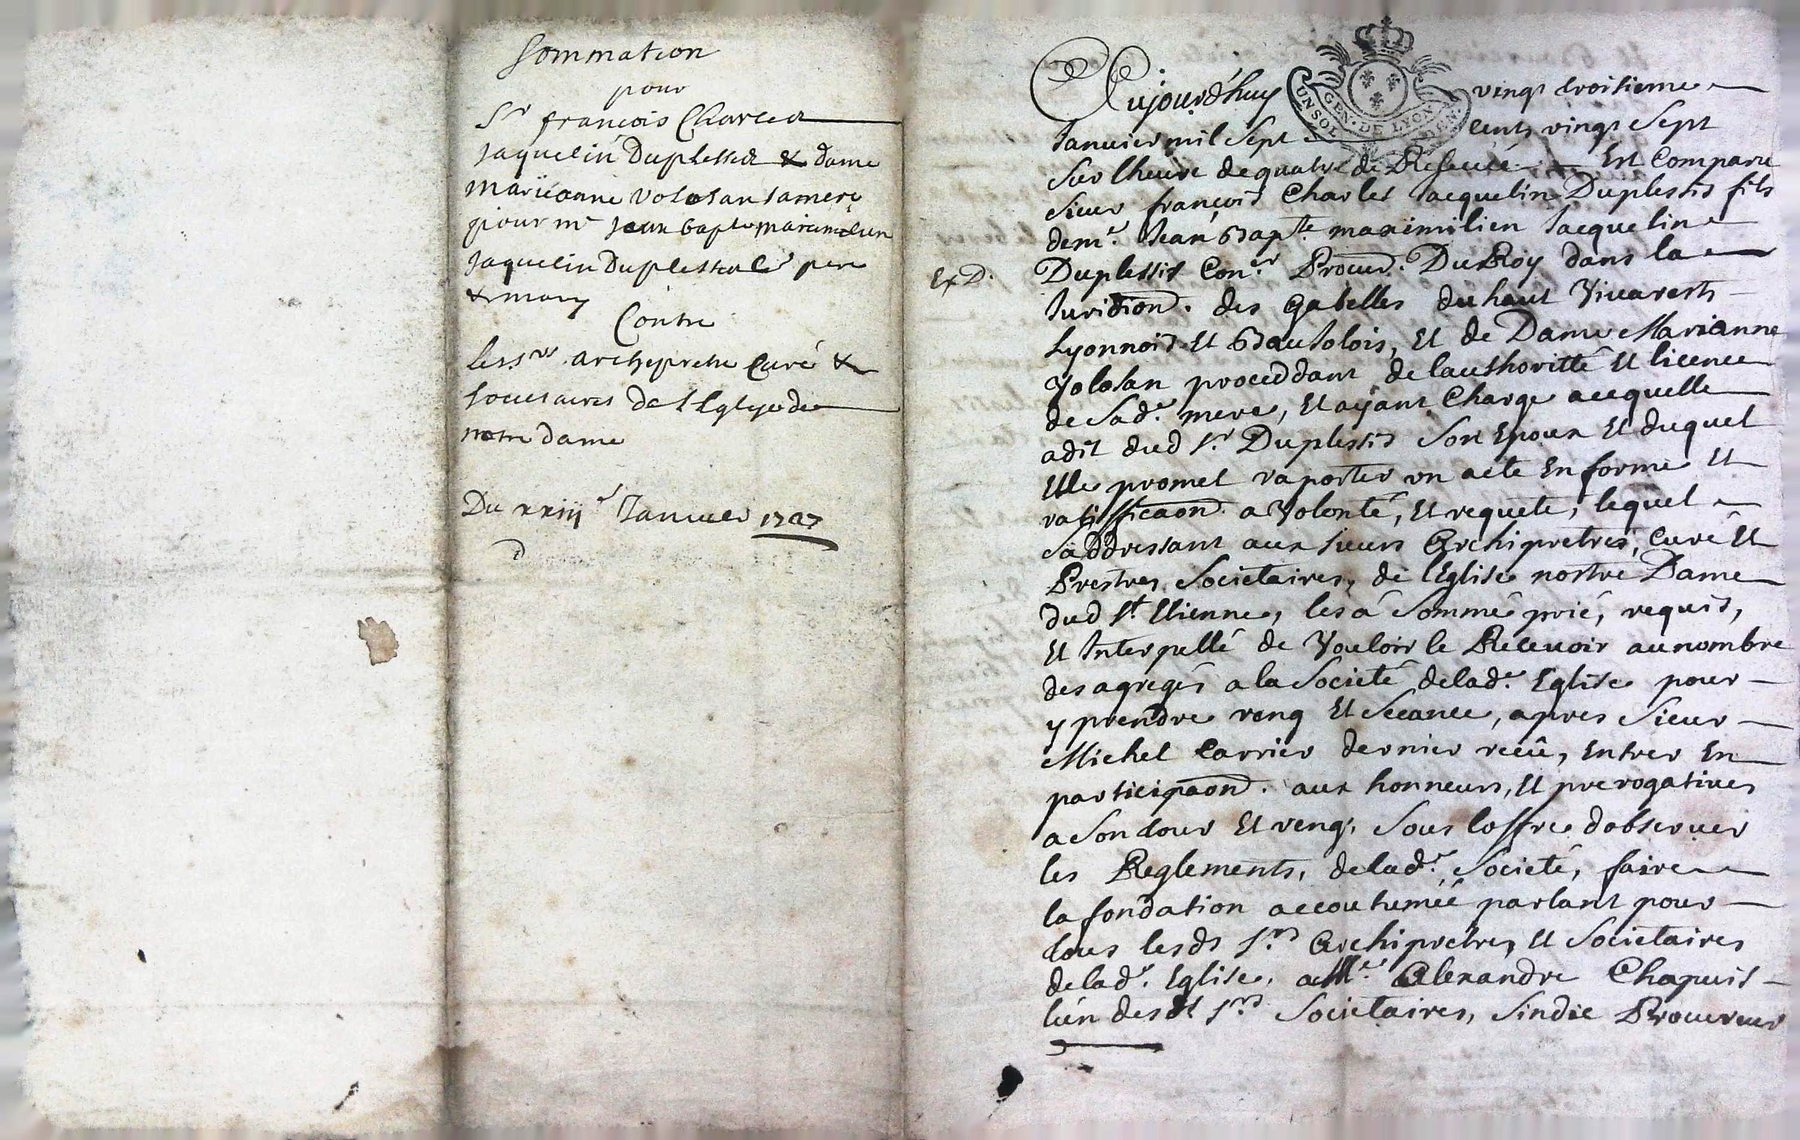 Sommation
pour
Sr françois Charles
Jaquelin Duplessis & dame
mariianne volosan samere
pour mr jean bapte maximilien
Jaquelin Duplessis pere
& mary
Contre
les srs archipretre Curé &
societaires de l'Eglise de
notre dame
Du xxiije Januier 1727
Ex D.
UN SOL
GEN. DE LYON
Aujourdhuy vingt troisieme
Januier mil Sept cents vingt Sept
Sur lheure de quatre de Releueé Est Comparu
Sieur françois Charles Jacquelin Duplessis fils
de mr. Jean Bapte. maximilien Jacquelin
Duplessis Conr. Procur. Du Roy dans la
Juridion. des gabelles du haut Viuarests
Lyonnois Et Baujolois, Et de Dame Marianne
Volosan proceddant de lauthoritté Et licence
de Sade. mere, Et ayant Charge acequelle
adit dud Sr. Duplessis Son Epoux Et duquel
Elle promet raporter un acte En forme Et
ratifficaon. a Volonté, Et requete, lequel
Saddressant aux sieurs Archipretres, Curé Et
Prestres Societaires, de lEglise nostre Dame
dud St. Etienne, les á Sommé prié, requis,
Et Interpellé de Vouloir le Receuoir au nombre
des agregés a la Societé delade. Eglise pour
y prendre reng Et Seéance, apres Sieur
Michel Carrier dernier receû, Entrer En
participaon. aux honneurs, Et prerogatiues
a Son tour Et reng, Sous loffre dobseruer
les Reglements, delade. Societé, faire
la fondation accoutumeé parlant pour
tous lesds Srs. Archipretres Et Societaires
delade. Eglise, a Me. Alexandre Chapuis
lun desds Srs. Societaires, Sindic Procureur